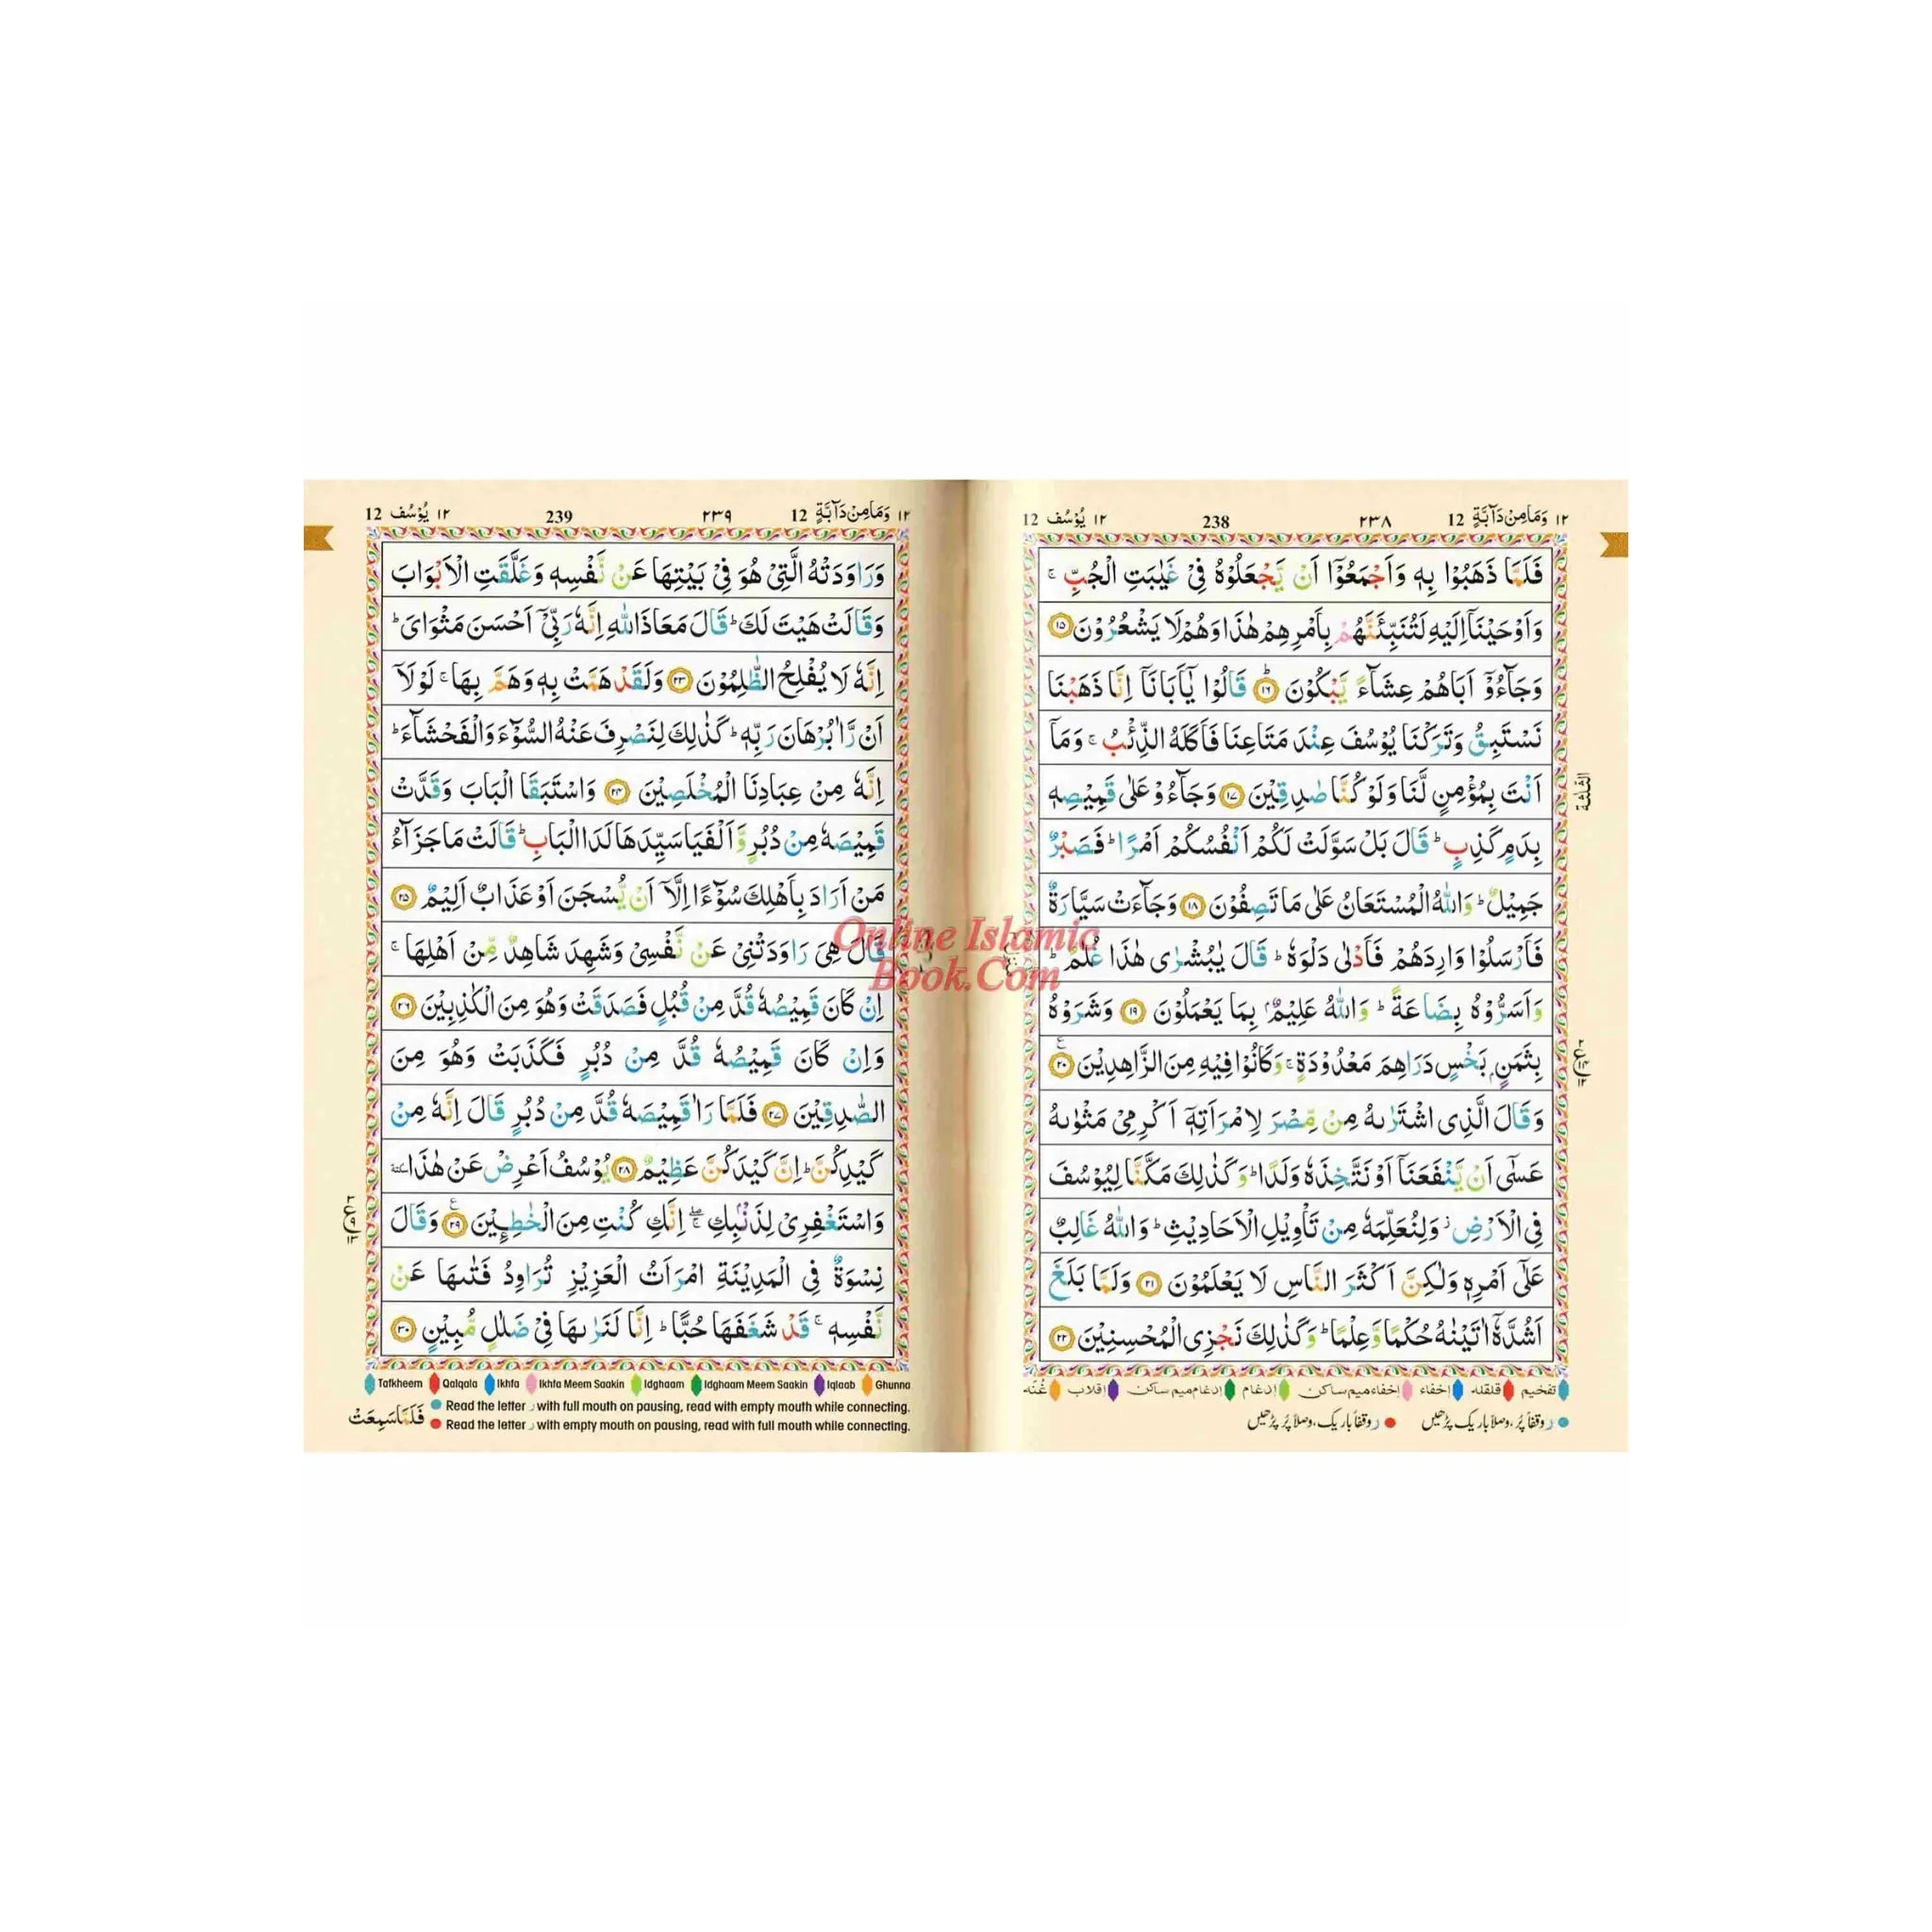 ١٢ وَمَا مِنْ دَآبَّةٍ 12 ٢٣٨ 238 ١٢ يُوْسُف 12
فَلَمَّا ذَهَبُوْا بِهٖ وَاَجْمَعُوْٓا اَنْ يَّجْعَلُوْهُ فِيْ غَيٰبَتِ الْجُبِّ ۚ
وَاَوْحَيْنَآ اِلَيْهِ لَتُنَبِّئَنَّهُمْ بِاَمْرِهِمْ هٰذَا وَهُمْ لَا يَشْعُرُوْنَ ١٥
وَجَآءُوْٓ اَبَاهُمْ عِشَآءً يَّبْكُوْنَ ؕ ١٦ قَالُوْا يٰٓاَبَانَآ اِنَّا ذَهَبْنَا
نَسْتَبِقُ وَتَرَكْنَا يُوْسُفَ عِنْدَ مَتَاعِنَا فَاَكَلَهُ الذِّئْبُ ۚ وَمَآ
اَنْتَ بِمُؤْمِنٍ لَّنَا وَلَوْ كُنَّا صٰدِقِيْنَ ١٧ وَجَآءُوْ عَلٰى قَمِيْصِهٖ
بِدَمٍ كَذِبٍ ؕ قَالَ بَلْ سَوَّلَتْ لَكُمْ اَنْفُسُكُمْ اَمْرًا ؕ فَصَبْرٌ
جَمِيْلٌ ؕ وَاللّٰهُ الْمُسْتَعَانُ عَلٰى مَا تَصِفُوْنَ ١٨ وَجَآءَتْ سَيَّارَةٌ
فَاَرْسَلُوْا وَارِدَهُمْ فَاَدْلٰى دَلْوَهٗ ؕ قَالَ يٰبُشْرٰى هٰذَا غُلٰمٌ ؕ
وَاَسَرُّوْهُ بِضَاعَةً ؕ وَاللّٰهُ عَلِيْمٌۢ بِمَا يَعْمَلُوْنَ ١٩ وَشَرَوْهُ
بِثَمَنٍۢ بَخْسٍ دَرَاهِمَ مَعْدُوْدَةٍ ۚ وَكَانُوْا فِيْهِ مِنَ الزَّاهِدِيْنَ ٢٠
وَقَالَ الَّذِى اشْتَرٰىهُ مِنْ مِّصْرَ لِامْرَاَتِهٖٓ اَكْرِمِيْ مَثْوٰىهُ
عَسٰٓى اَنْ يَّنْفَعَنَآ اَوْ نَتَّخِذَهٗ وَلَدًا ؕ وَكَذٰلِكَ مَكَّنَّا لِيُوْسُفَ
فِى الْاَرْضِ ؗ وَلِنُعَلِّمَهٗ مِنْ تَاْوِيْلِ الْاَحَادِيْثِ ؕ وَاللّٰهُ غَالِبٌ
عَلٰٓى اَمْرِهٖ وَلٰكِنَّ اَكْثَرَ النَّاسِ لَا يَعْلَمُوْنَ ٢١ وَلَمَّا بَلَغَ
اَشُدَّهٗٓ اٰتَيْنٰهُ حُكْمًا وَّعِلْمًا ؕ وَكَذٰلِكَ نَجْزِى الْمُحْسِنِيْنَ ٢٢
تفخیم قلقلہ اِخفاء اِخفاءمیم ساکن اِدغام اِدغام میم ساکن اِقلاب غُنّہ
ر وقفاً پُر، وصلاً باریک پڑھیں ر وقفاً باریک، وصلاً پُر پڑھیں
١٢ وَمَا مِنْ دَآبَّةٍ 12 ٢٣٩ 239 ١٢ يُوْسُف 12
وَرَاوَدَتْهُ الَّتِيْ هُوَ فِيْ بَيْتِهَا عَنْ نَّفْسِهٖ وَغَلَّقَتِ الْاَبْوَابَ
وَقَالَتْ هَيْتَ لَكَ ؕ قَالَ مَعَاذَ اللّٰهِ اِنَّهٗ رَبِّيْٓ اَحْسَنَ مَثْوَايَ ؕ
اِنَّهٗ لَا يُفْلِحُ الظّٰلِمُوْنَ ٢٣ وَلَقَدْ هَمَّتْ بِهٖ وَهَمَّ بِهَا ۚ لَوْلَآ
اَنْ رَّاٰ بُرْهَانَ رَبِّهٖ ؕ كَذٰلِكَ لِنَصْرِفَ عَنْهُ السُّوْٓءَ وَالْفَحْشَآءَ ؕ
اِنَّهٗ مِنْ عِبَادِنَا الْمُخْلَصِيْنَ ٢٤ وَاسْتَبَقَا الْبَابَ وَقَدَّتْ
قَمِيْصَهٗ مِنْ دُبُرٍ وَّاَلْفَيَا سَيِّدَهَا لَدَا الْبَابِ ؕ قَالَتْ مَا جَزَآءُ
مَنْ اَرَادَ بِاَهْلِكَ سُوْٓءًا اِلَّآ اَنْ يُّسْجَنَ اَوْ عَذَابٌ اَلِيْمٌ ٢٥
قَالَ هِيَ رَاوَدَتْنِيْ عَنْ نَّفْسِيْ وَشَهِدَ شَاهِدٌ مِّنْ اَهْلِهَا ۚ
اِنْ كَانَ قَمِيْصُهٗ قُدَّ مِنْ قُبُلٍ فَصَدَقَتْ وَهُوَ مِنَ الْكٰذِبِيْنَ ٢٦
وَاِنْ كَانَ قَمِيْصُهٗ قُدَّ مِنْ دُبُرٍ فَكَذَبَتْ وَهُوَ مِنَ
الصّٰدِقِيْنَ ٢٧ فَلَمَّا رَاٰ قَمِيْصَهٗ قُدَّ مِنْ دُبُرٍ قَالَ اِنَّهٗ مِنْ
كَيْدِكُنَّ ؕ اِنَّ كَيْدَكُنَّ عَظِيْمٌ ٢٨ يُوْسُفُ اَعْرِضْ عَنْ هٰذَا سكتة
وَاسْتَغْفِرِيْ لِذَنْۢبِكِ ۖۚ اِنَّكِ كُنْتِ مِنَ الْخٰطِـِٕيْنَ ٢٩ وَقَالَ
نِسْوَةٌ فِى الْمَدِيْنَةِ امْرَاَتُ الْعَزِيْزِ تُرَاوِدُ فَتٰىهَا عَنْ
نَّفْسِهٖ ۚ قَدْ شَغَفَهَا حُبًّا ؕ اِنَّا لَنَرٰىهَا فِيْ ضَلٰلٍ مُّبِيْنٍ ٣٠
Tafkheem Qalqala Ikhfa Ikhfa Meem Saakin Idghaam Idghaam Meem Saakin Iqlaab Ghunna
Read the letter ر with full mouth on pausing, read with empty mouth while connecting.
Read the letter ر with empty mouth on pausing, read with full mouth while connecting.
فَلَمَّا سَمِعَتْ
Online Islamic
Book.Com